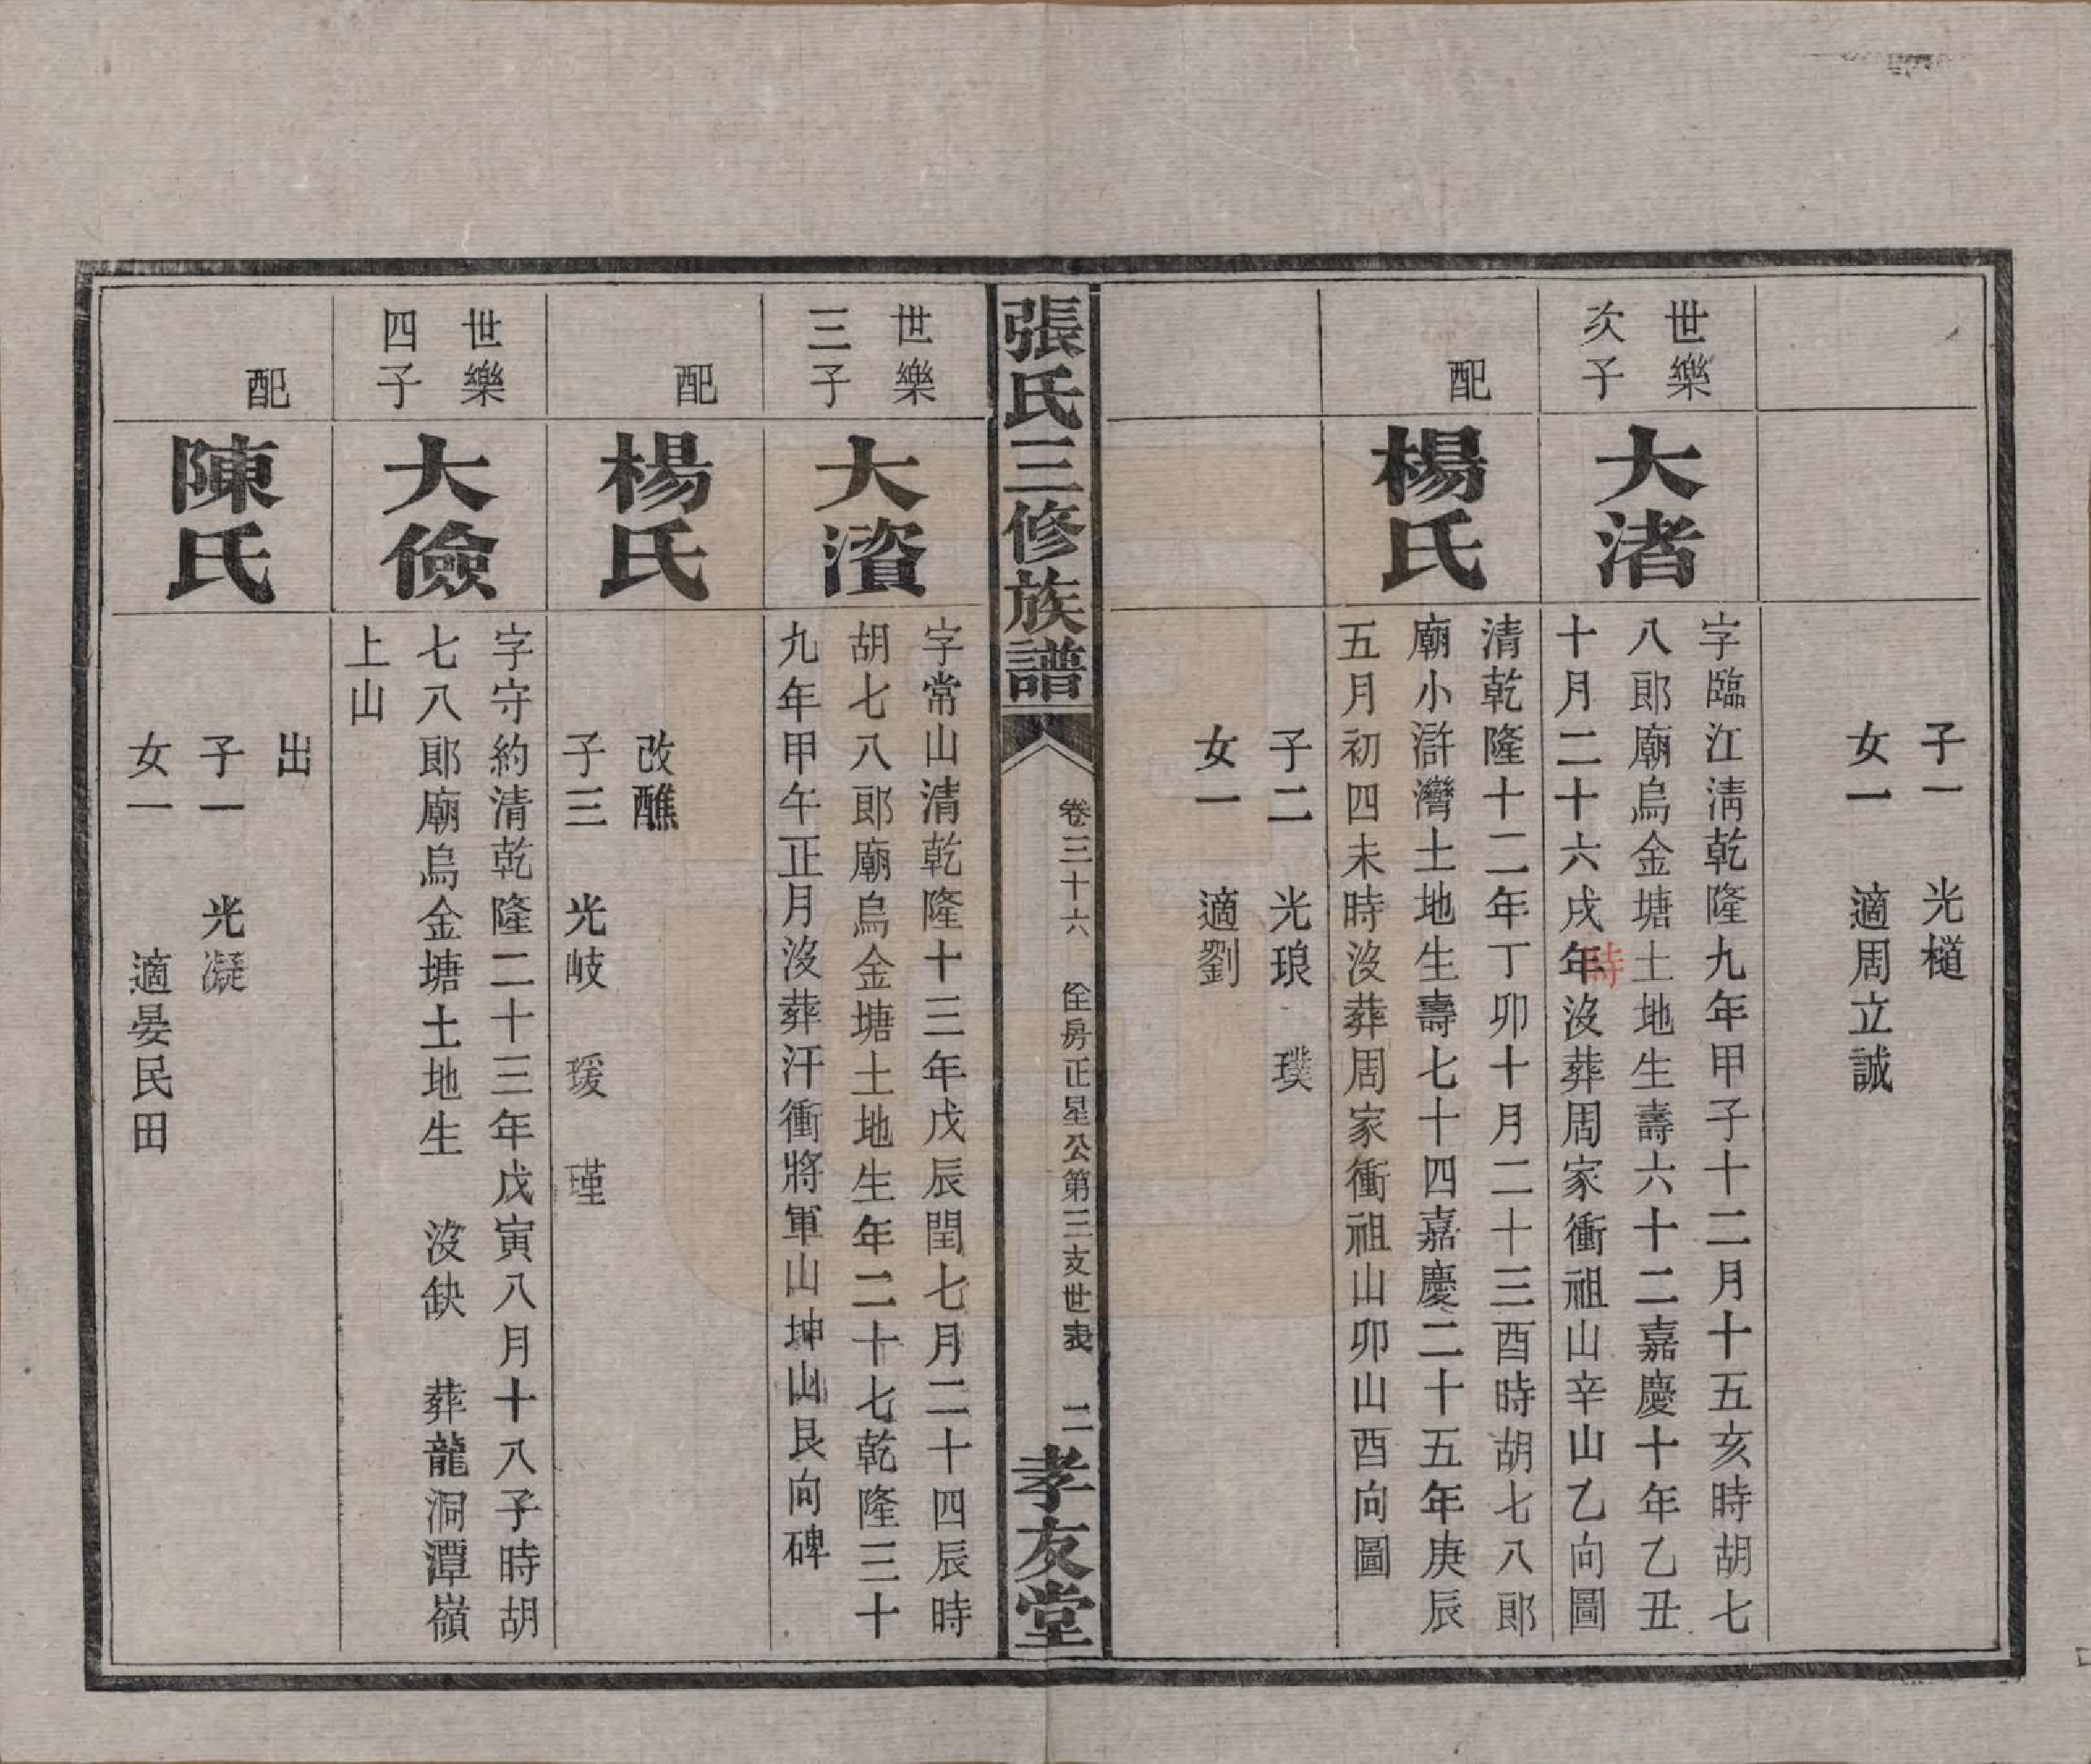 子一　光槌
女一　適周立誠
世樂
次子
大渚
字臨江清乾隆九年甲子十二月十五亥時胡七
八郎廟烏金塘土地生壽六十二嘉慶十年乙丑
十月二十六戌年沒葬周家衝祖山辛山乙向圖
時
配
楊氏
清乾隆十二年丁卯十月二十三酉時胡七八郎
廟小滸灣土地生壽七十四嘉慶二十五年庚辰
五月初四未時沒葬周家衝祖山卯山酉向圖
子二　光琅　璞
女一　適劉
張氏三修族譜
卷三十六　佺房正星公第三支世表　二
孝友堂
世樂
三子
大濱
字常山清乾隆十三年戊辰閏七月二十四辰時
胡七八郎廟烏金塘土地生年二十七乾隆三十
九年甲午正月沒葬汗衝將軍山坤山艮向碑
配
楊氏
改醮
子三　光岐　瑗　瑾
世樂
四子
大儉
字守約清乾隆二十三年戊寅八月十八子時胡
七八郎廟烏金塘土地生　沒缺　葬龍洞潭嶺
上山
配
陳氏
出
子一　光凝
女一　適晏民田